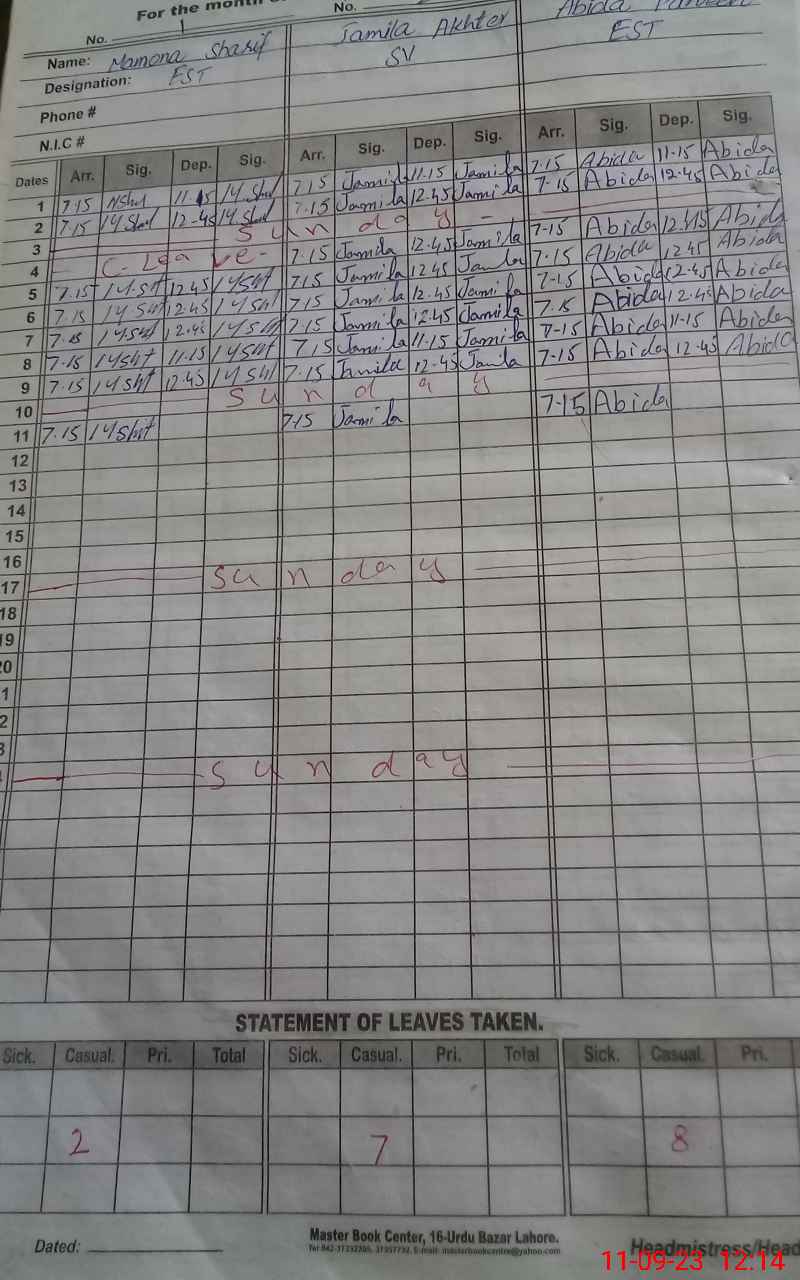 For the month
No. 1 No.
Name: Mamona Sharif Jamila Akhter Abida Parveen
Designation: EST SV EST
Phone #
N.I.C #
Dates Arr. Sig. Dep. Sig. Arr. Sig. Dep. Sig. Arr. Sig. Dep. Sig.
1 7.15 11.15 7.15 Jamila 11.15 Jamila 7.15 Abida 11.15 Abida
2 7.15 12-45 7.15 Jamila 12.45 Jamila 7-15 Abida 12.45 Abida
3 Sunday
4 C-Leave- 7.15 Jamila 12.45 Jamila 7-15 Abida 12.45 Abida
5 7.15 12.45 7.15 Jamila 12.45 Jamila 7.15 Abida 12.45 Abida
6 7.15 12.45 7.15 Jamila 12.45 Jamila 7-15 Abida 12.45 Abida
7 7.15 12.45 7.15 Jamila 12.45 Jamila 7.15 Abida 12.45 Abida
8 7.15 11.15 7.15 Jamila 11.15 Jamila 7-15 Abida 11-15 Abida
9 7.15 12.45 7.15 Jamila 12.45 Jamila 7-15 Abida 12.45 Abida
10 Sunday
11 7.15 7.15 Jamila 7-15 Abida
12
13
14
15
16
17 Sunday
18
19
20
1
2
3
Sunday
STATEMENT OF LEAVES TAKEN.
Sick. Casual. Pri. Total Sick. Casual. Pri. Total Sick. Casual. Pri.
2 7 8
Dated:
Master Book Center, 16-Urdu Bazar Lahore.
Headmistress/Head
11-09-23 12:14